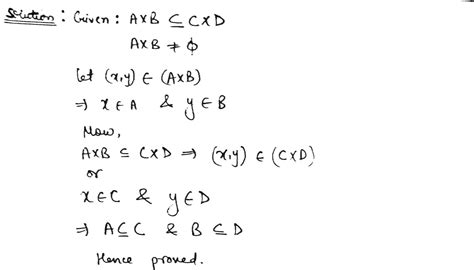 Solution : Given : A×B ⊆ C×D
A×B ≠ ϕ
Let (x,y) ∈ (A×B)
⇒ x ∈ A & y ∈ B
Now,
A×B ⊆ C×D ⇒ (x,y) ∈ (C×D)
or
x ∈ C & y ∈ D
⇒ A ⊆ C & B ⊆ D
Hence proved.